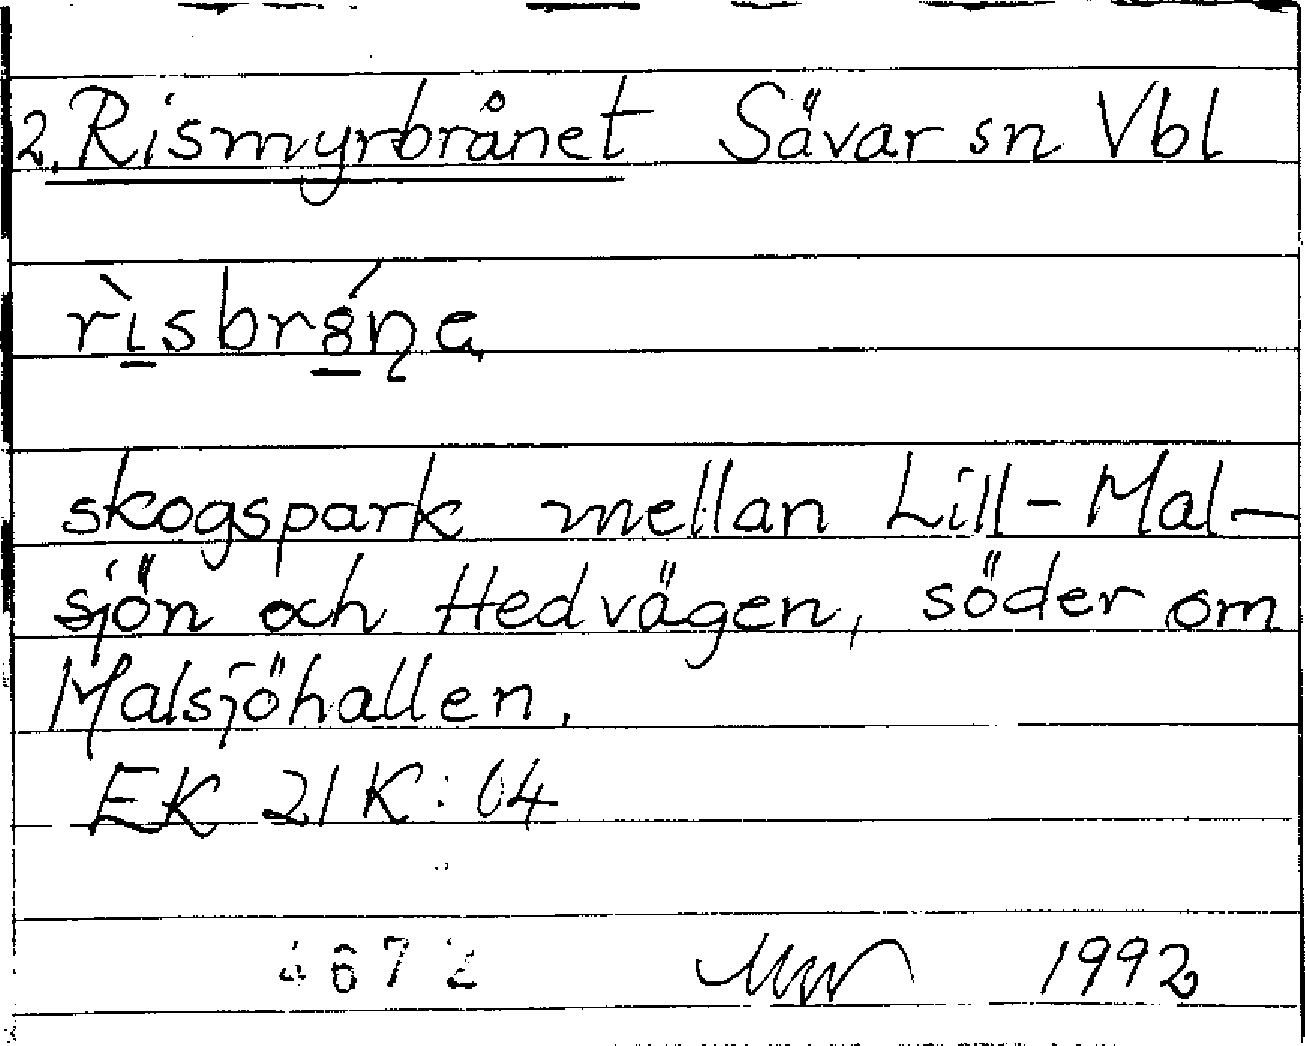 2. Rismyrbrånet Sävar sn Vbl
skogspark mellan Lill-Mal-
sjön och Hedvägen, söder om
Malsjöhallen.
EK 21K: 04
1992